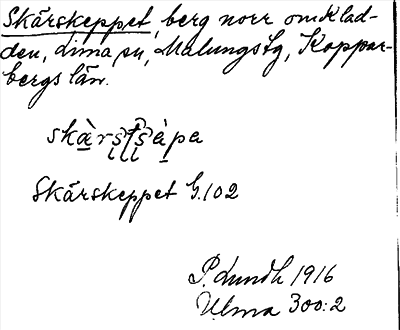 Skärskeppet, berg norr om Klad-
den, Lima sn, Malungs tg, Koppar-
bergs län.
Skärskeppet G.102
P. Lundh 1916
Ulma 300:2